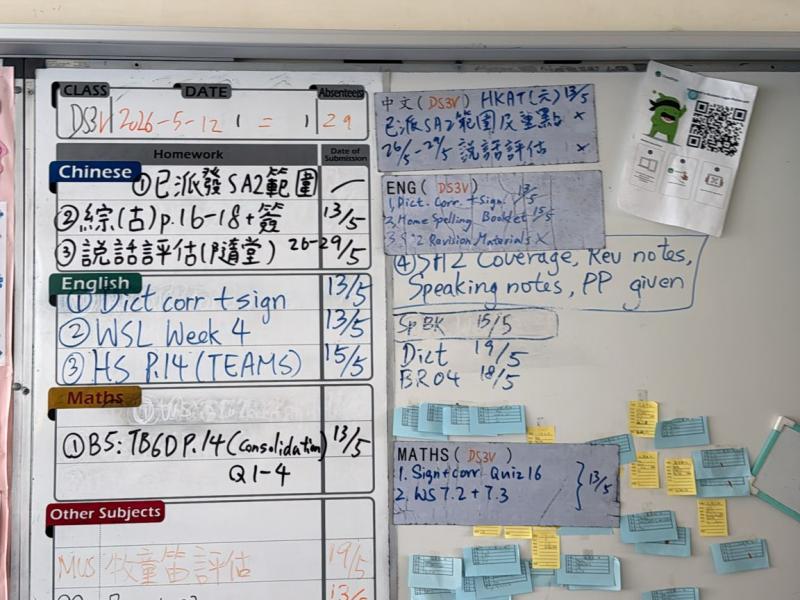 CLASS DATE Absentees
DS3V 2026-5-12 ( = ) 29
Homework Date of Submission
Chinese ①已派發SA2範圍 —
②綜(古)p.16-18+簽 13/5
③說話評估(隨堂) 26-29/5
English
①Dict corr +sign 13/5
②WSL Week 4 13/5
③HS P.14 (TEAMS) 15/5
Maths
①B5: TB6D P.14 (Consolidation) 13/5
Q1-4
Other Subjects
MUS 牧童笛評估 19/5
中文(DS3V) HKAT(元) 13/5
已派SA2範圍及重點 ×
26/5-29/5 說話評估 ×
ENG (DS3V)
1, Dict. Corr. +Sign. 13/5
2, Home Spelling Booklet 15/5
Revision Materials ×
④SA2 Coverage, Rev notes,
Speaking notes, PP given
Sp BK 15/5
Dict 19/5
BR04 18/5
MATHS (DS3V)
1. Sign+corr Quiz 16
2. WS 7.2 + 7.3 } 13/5